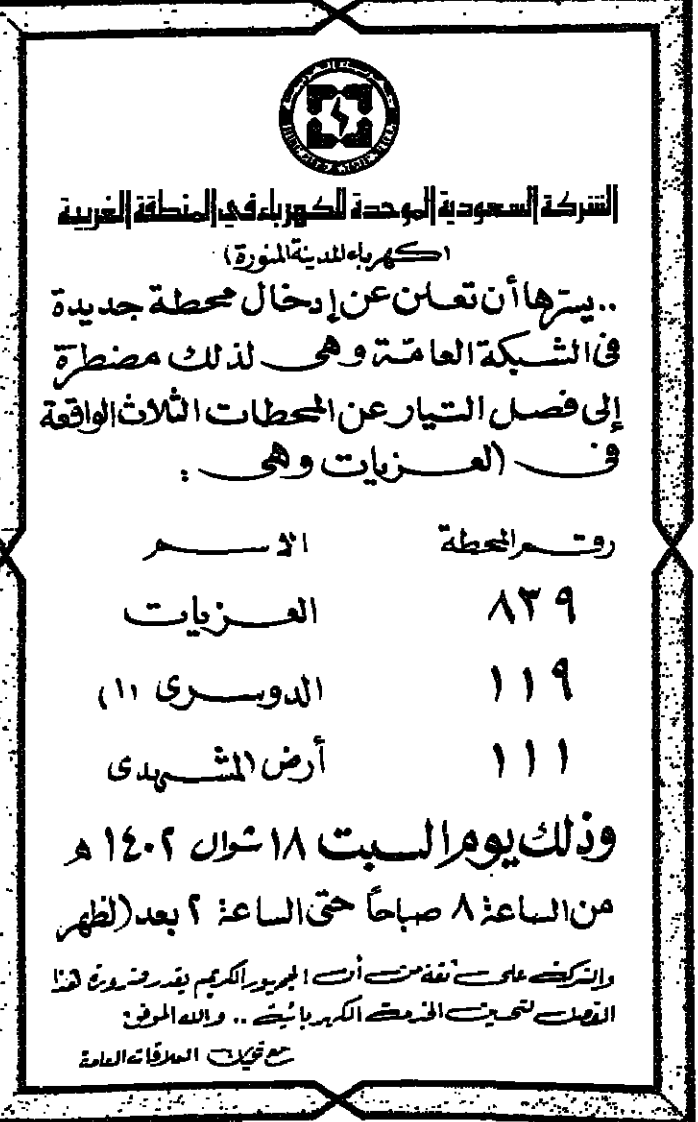 الشركة السعودية الموحدة للكهرباء في المنطقة الغربية
(كهرباء المدينة المنورة)
.. يسرّها أن تعلن عن إدخال محطة جديدة
فى الشبكة العامّة وهى لذلك مضطرّة
إلى فصل التيار عن المحطات الثلاث الواقعة
فى العزيات وهى :
رقم المحطة الاسم
٨٣٩ العزيات
١١٩ الدوسرى (١)
١١١ أرض المشهدى
وذلك يوم السبت ١٨ شوال ١٤٠٢ هـ
من الساعة ٨ صباحاً حتى الساعة ٢ بعد الظهر
والشركة على ثقة من أن الجمهور الكريم يقدر ضرورة هذا
الفصل لتحسين الخدمة الكهربائية .. والله الموفق
مع تحيات العلاقات العامة